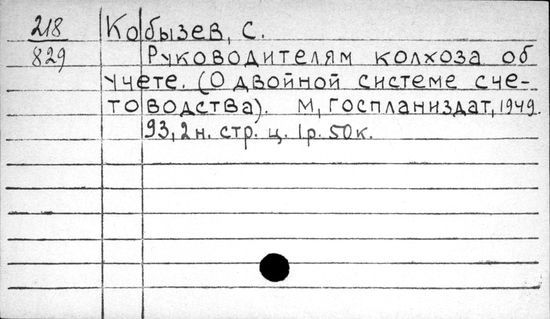 218 Кобызев, С.
829 Руководителям колхоза об
учете. (О двойной системе сче-
товодства). М, Госпланиздат, 1949.
93, 2 н. стр. ц. 1р. 50к.